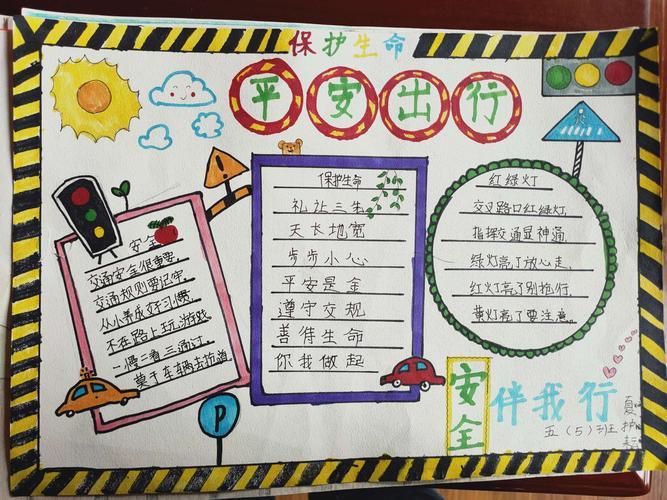 保护生命
平安出行
安全
交通安全很重要,
交通规则要记牢。
从小养成好习惯,
不在路上玩游戏
一慢二看三通过,
莫于车辆去抢道
保护生命
礼让三先
天长地宽
步步小心
平安是金
遵守交规
善待生命
你我做起
红绿灯
交叉路口红绿灯,
指挥交通显神通,
绿灯亮了放心走,
红灯亮了别抢行,
黄灯亮了要注意。
P
安全
伴我行
五(5)班